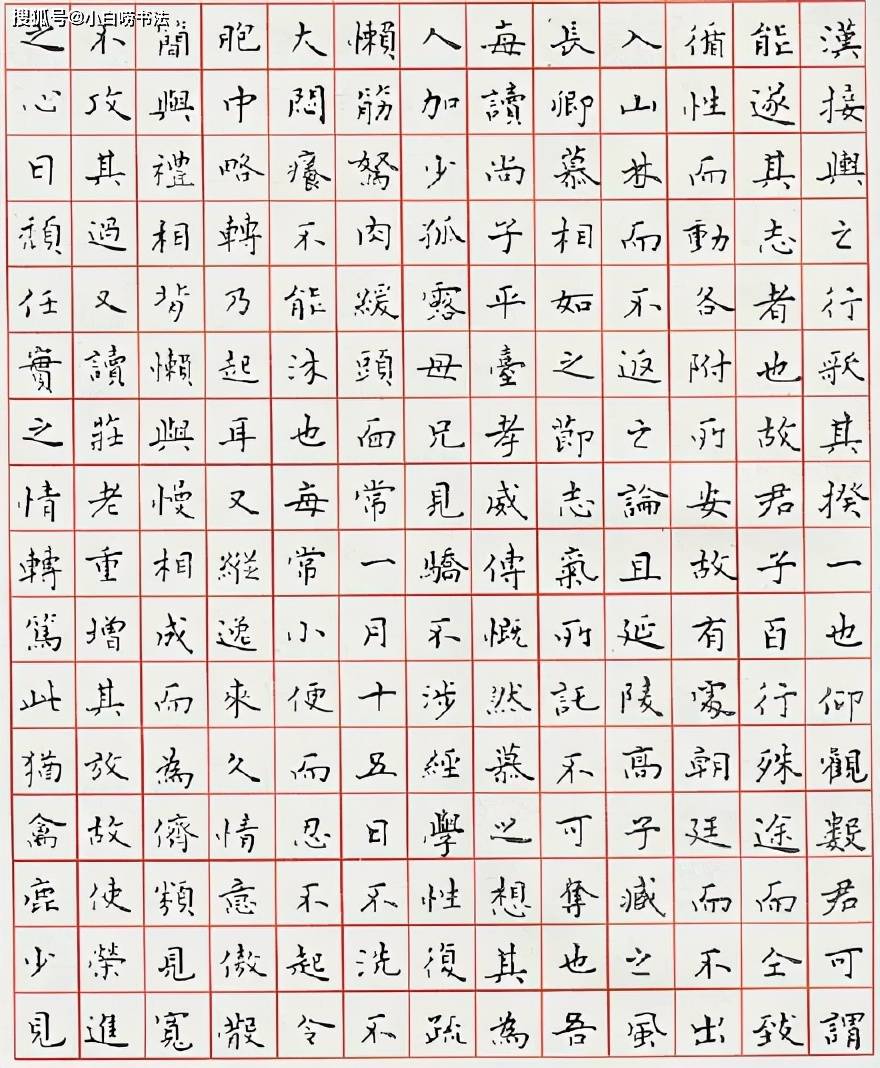 搜狐号@小白唠书法
漢接輿之行歌其揆一也仰觀數君可謂
能遂其志者也故君子百行殊途而仝致
循性而動各附所安故有處朝廷而不出
入山林而不返之論且延陵高子臧之風
長卿慕相如之節志氣所託不可奪也吾
每讀尚子平臺孝威傳慨然慕之想其為
人加少孤露母兄見驕不涉經學性復疏
懶筋駑肉緩頭面常一月十五日不洗不
大悶癢不能沐也每常小便而忍不起令
胞中略轉乃起耳又縱逸來久情意傲散
簡與禮相背懶與慢相成而為儕類見寬
不攻其過又讀莊老重增其放故使榮進
之心日頹任實之情轉篤此猶禽鹿少見